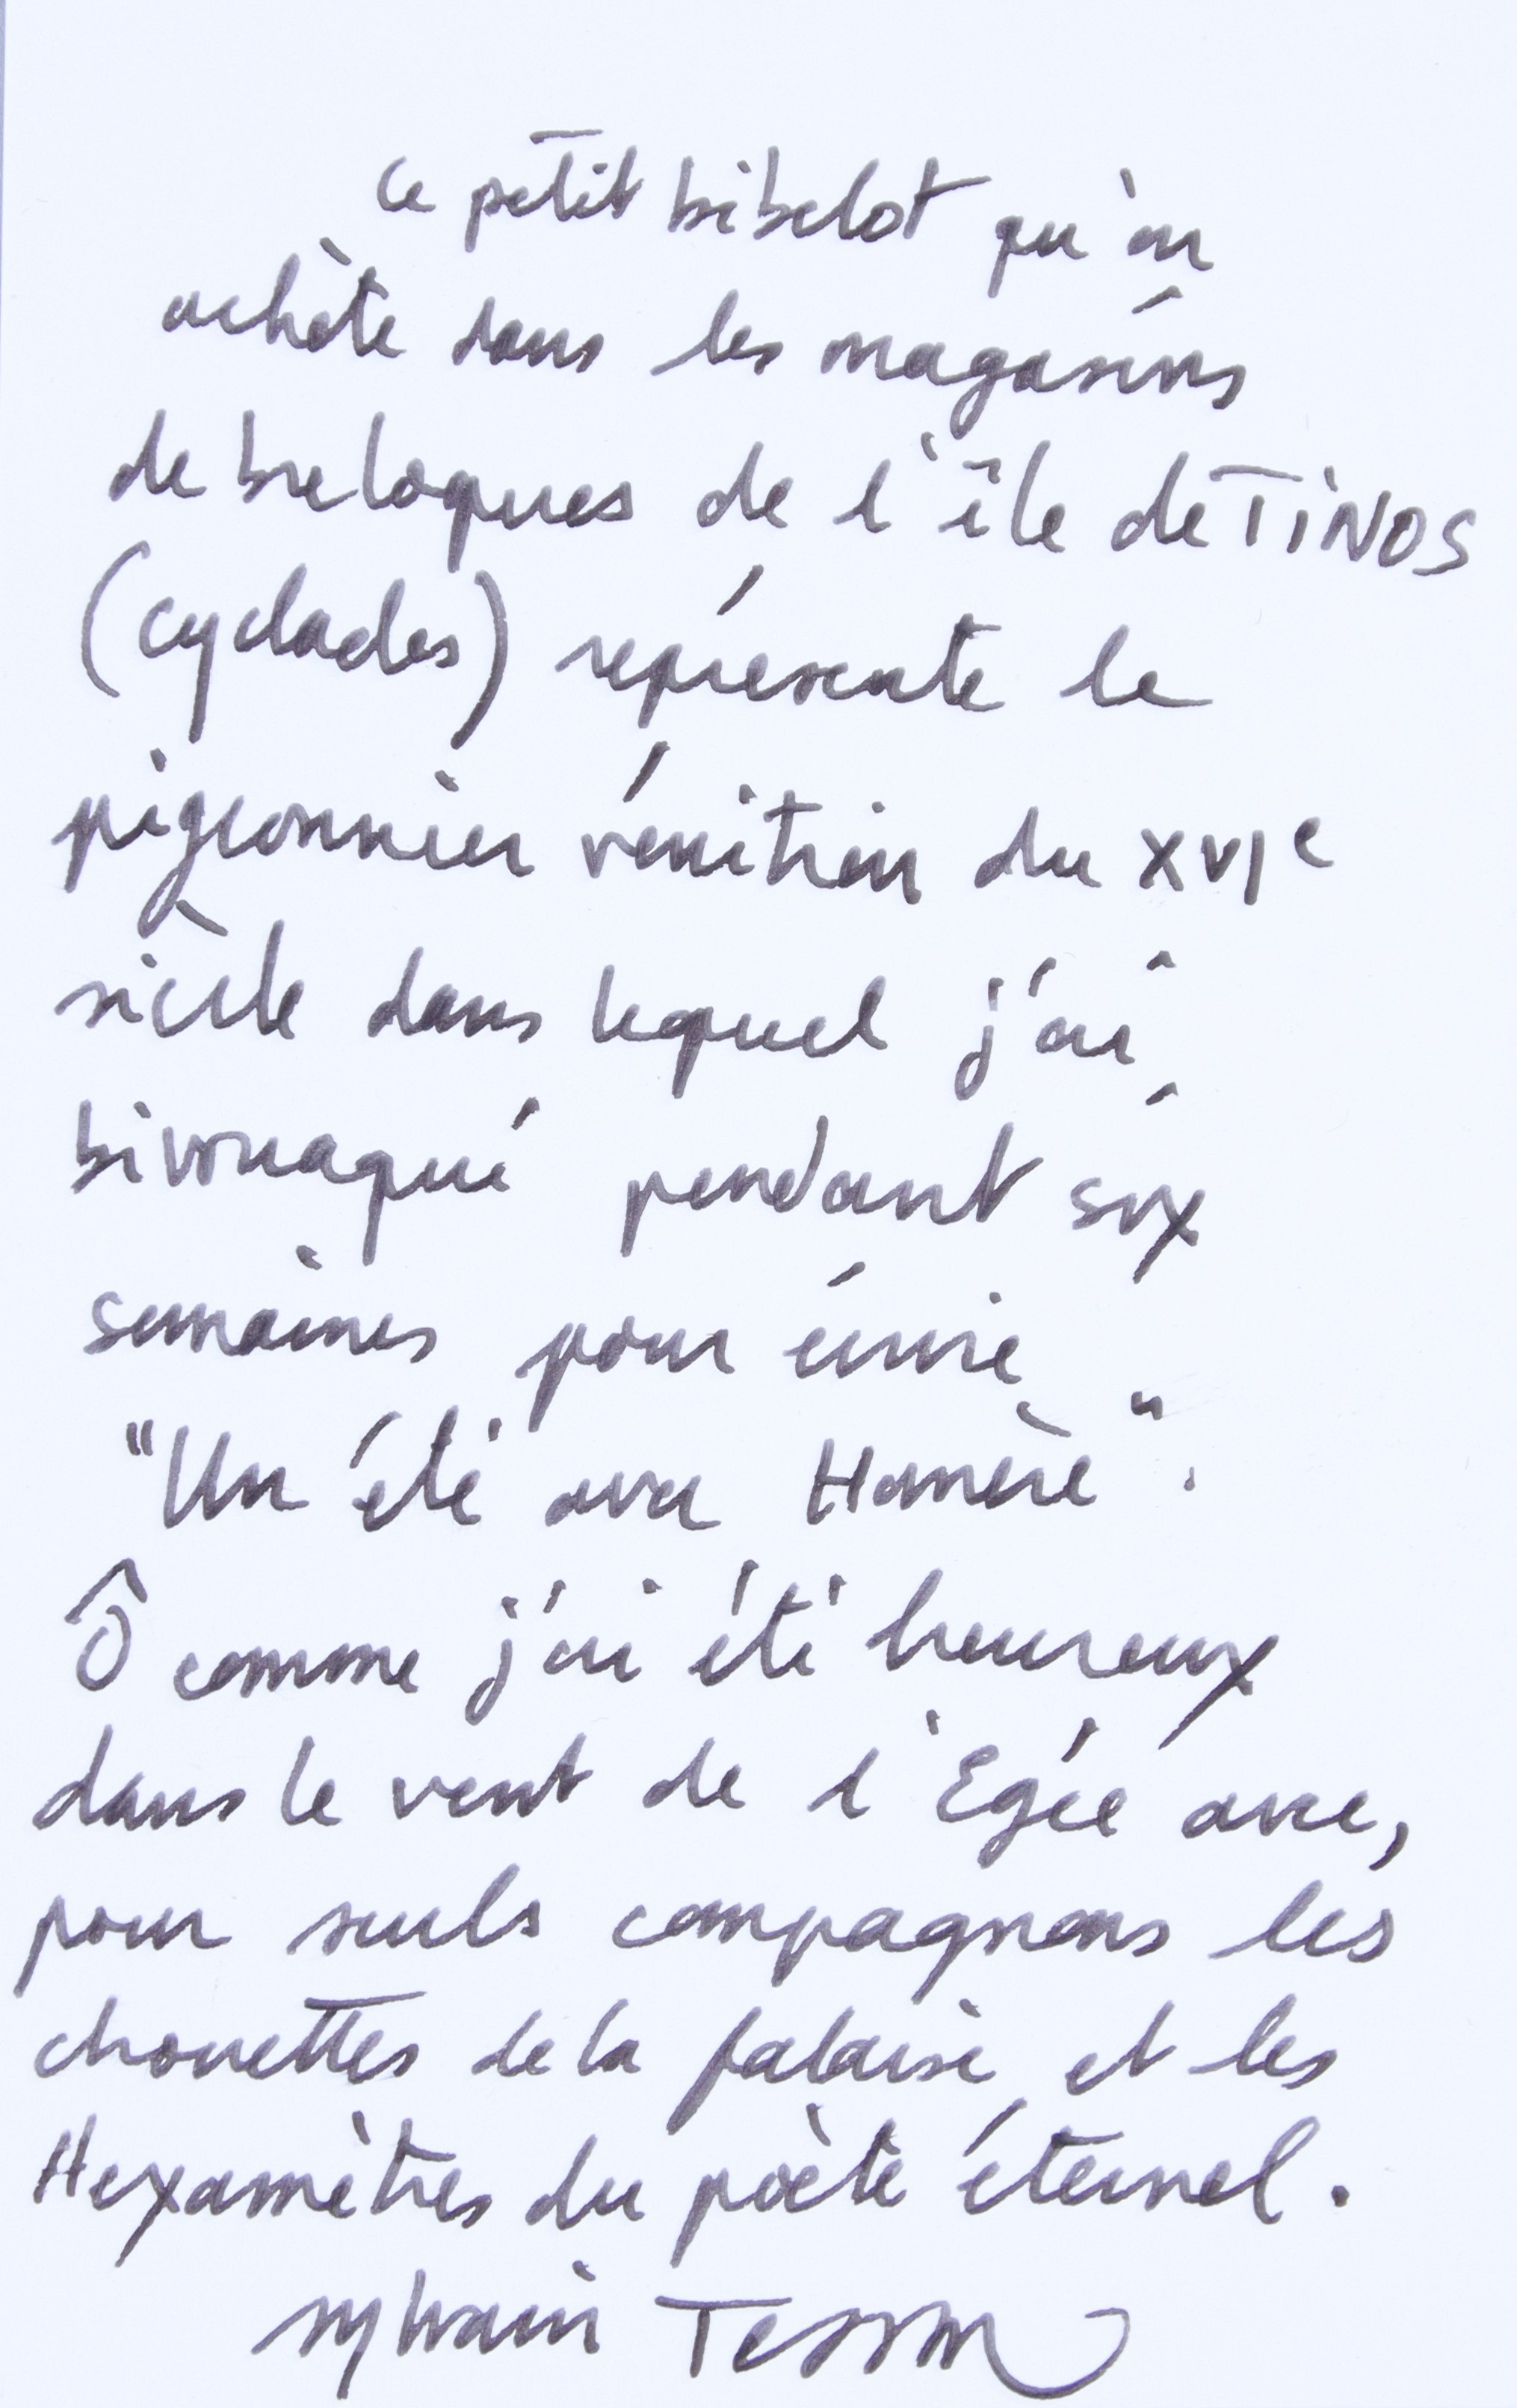 Ce petit bibelot qu'on
achète dans les magasins
de breloques de l'île de TiNOS
(cyclades) représente le
pigeonnier vénitien du XVIe
siècle dans lequel j'ai
bivouaqué pendant six
semaines pour écrire
"Un été avec Homère".
Ô comme j'ai été heureux
dans le vent de l'Egée avec,
pour seuls compagnons les
chouettes de la falaise et les
Hexamètres du poète éternel.
Sylvain Tesson